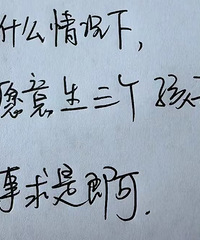 什么情况下,
愿意生三个孩子
事求是即可.